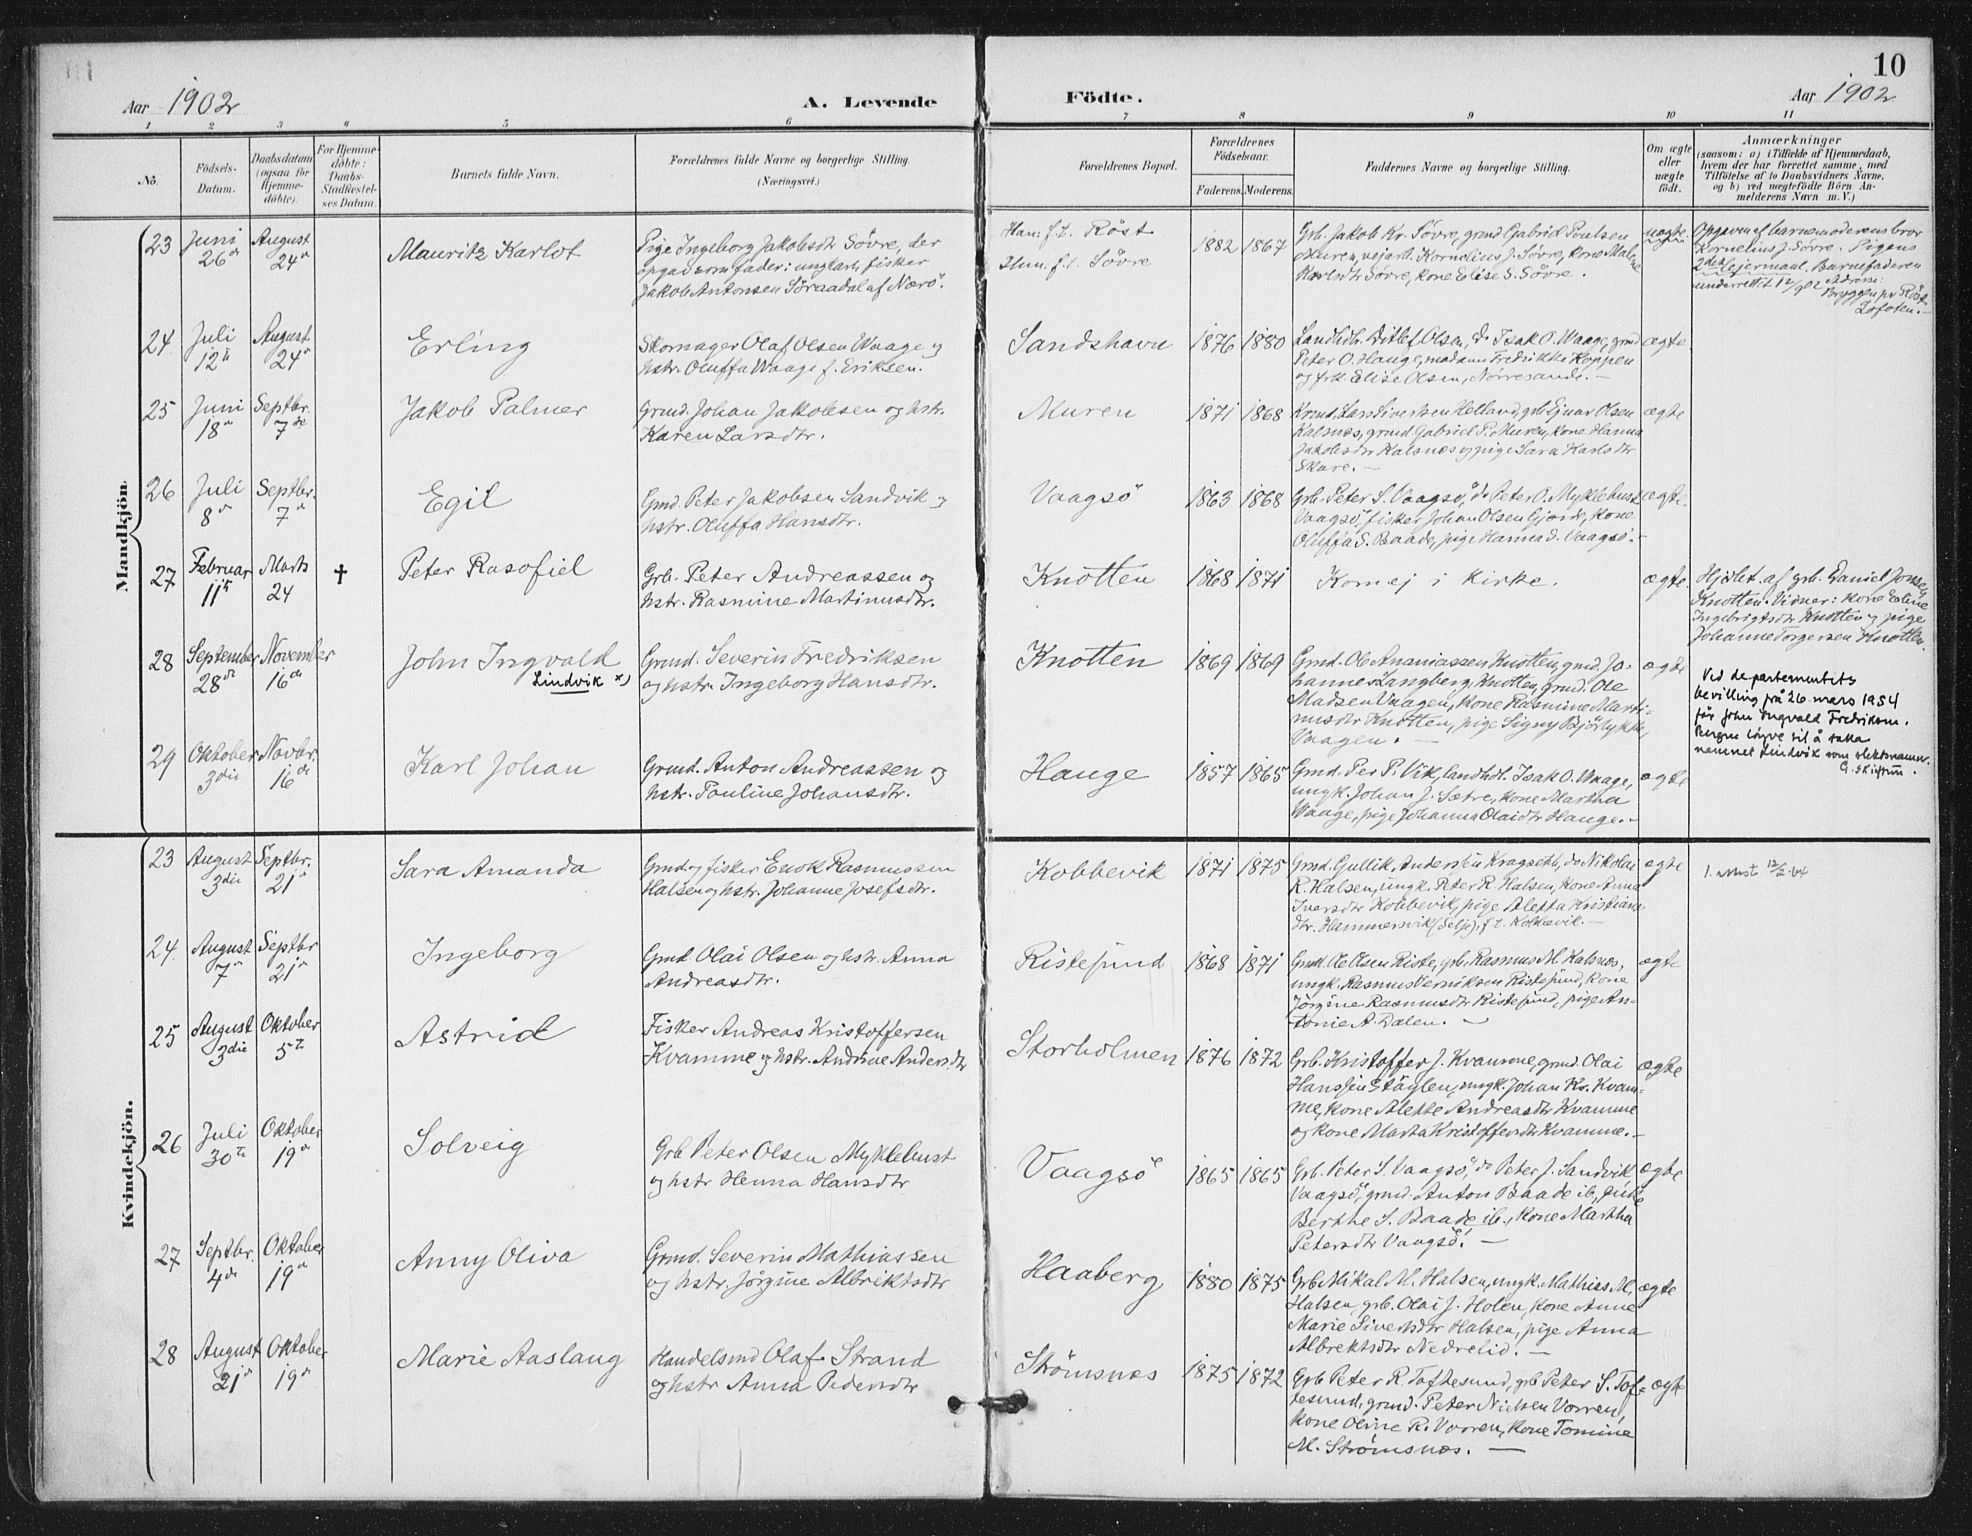 10
Aar 1902
A. Levende
Födte.
Aar 1902
1 2 3 4 5 6 7 8 9 10 11
No.
Födsels-
Datum.
Daabsdatum
(ogsaa för
Hjemme-
döbte).
For Hjemme-
döbte:
Daabs-
Stadfæstel-
ses Datum.
Barnets fulde Navn.
Forældrenes fulde Navne og borgerlige Stilling.
(Næringsvei.)
Forældrenes Bopæl.
Forældrenes
Födselsaar.
Faderens. Moderens.
Faddernes Navne og borgerlige Stilling.
Om ægte
eller
uægte
födt.
Anmærkninger
(saasom: a) i Tilfælde af Hjemmedaab,
hvem der har forrettet samme, med
Tilföielse af to Daabsvidners Navne,
og b) ved uægtefödte Börn An-
melderens Navn m. V.)
Mandkjön.
23 Juni 26de August 24de
Mauritz Karlot
Pige Ingeborg Jakobsdtr Søvre, der
opgai som fader: ungkarl, fisker
Jakob Antonsen Söraadal af Nærö.
Han: f.t. Röst
Hun. f.t. Søvre
1882 1867
Grb. Jakob Kr. Søvre, grmd Gabriel Paulsen
Muren, vejarb. Kornelius J. Søvre, kone Malene
Karlsdtr Søvre, kone Elise S. Søvre.
uægte
Opgaven af barnemoderens bror
Kornelius J. Søvre. Pigens
2det lejermaal. Barnefaderen
underrettet 12/9 02 Adresse:
Bryggen pr Röst
Lofoten.
24 Juli 12te August 24de
Erling
Skomager Olaf Olsen Waage og
hstr. Oluffa Waage f. Eriksen.
Sandshavn
1876 1880
Landhdl. Ditlef Olsen, do Isak O. Waage, grmd
Peter O. Hauge, madam Fredrikke Koppen
og frk. Elise Olsen, Nörresande.
ægte
25 Juni 18de Septbr. 7de
Jakob Palmer
Grmd. Johan Jakobsen og hstr.
Karen Larsdtr.
Muren
1871 1868
Grmd. Lars Sivertsen Helland, grb Ejnar Olsen
Kalsnes, grmd Gabriel P. Muren, kone Hanna
Jakobsdtr Kalsnes og pige Sara Karlsdtr
Skare.
ægte
26 Juli 8de Septbr. 7de
Egil
Grmd Peter Jakobsen Sandvik og
hstr. Oluffa Hansdtr.
Vaagsö
1863 1868
Grb. Peter S. Vaagsö, do Peter O. Myklebust
Vaagsö, fisker Johan Olsen Gjørde, kone
Oluffa S. Baade, pige Hanna S. Vaagsö.
ægte.
27 Februar 11te Marts 24 †
Peter Rasofiel
Grb. Peter Andreassen og
hstr. Rasmine Martinusdtr.
Knotten
1868 1871
Kom ej i kirke.
ægte
Hjdbt. af grb. Daniel Jonsen
Knotten. Vidner: kone Eline
Ingebrigtsdtr Knotten og pige
Johanne Torgersen Knotten.
28 September 28de November 16de
John Ingvald
Lindvik x)
Grmd. Severin Fredriksen
og hstr. Ingeborg Hansdtr.
Knotten
1869 1869
Grmd. Ole Ananiassen Knotten, grmd. Jo-
hannes Langberg, Knotten, grmd. Ole
Madsen Vaagen, kone Rasmine Marti-
nusdtr Knotten, pige Signy Björlykke,
Vaagen.
ægte
Ved departementets
bevilling på 26. mars 1954
får John Ingvald Fredriksen.
Bergen løyve til å taka
namnet Lindvik som slektsnamn.
29 Oktober 3die Novbr. 16de
Karl Johan
Grmd. Anton Andreassen og
hstr. Pauline Johansdtr.
Hauge
1857 1865
Grmd. Per P. Vik, landhdl. Isak O. Waage,
ungk. Johan J. Sætre, kone Martha
Waage, pige Johanna Olaidtr Hauge.
ægte
Kvindekjön.
23 August 3die Septbr. 21de
Sara Amanda
Grmd og fisker Enok Rasmussen
Halsen og hstr. Johanne Josefsdtr.
Kobbevik
1871 1875
Grmd. Gullik Andersen Kragseth, do Nikolai
R. Halsen, ungk. Peter R. Halsen, kone Anna
Iversdtr Kobbevik, pige Aletta Kristians-
dtr. Hammersvik (Selje), f.t. Kobbevik.
ægte
1. attest 12/2-64
24. August 7de Septbr 21de
Ingeborg
Grmd Olai Olsen og hstr. Anna
Andreasdtr.
Ristesund
1868 1871
Grmd. Ole Olsen Riste, grb. Rasmus M. Kalsnes,
ungk. Rasmus Verniksen Ristesund, kone
Jørgine Rasmusdtr Ristesund, pige An-
tonie A. Dalen.
ægte
25 August 3die Oktober 5te
Astrid
Fisker Andreas Kristoffersen
Kvamme og hstr. Andrine Andersdtr
Storholmen
1876 1872
Grb. Kristoffer J. Kvamme, grmd. Olai
Hanssen Støylen, ungk. Johan Kr. Kvam-
me, kone Alette Andreasdtr Kvamme
og kone Marta Kristoffersdtr Kvamme.
ægte
26 Juli 30te Oktober 19de
Solveig
Grb Peter Olsen Myklebust
og hstr Henna Hansdtr
Vaagsö
1865 1865
Grb. Peter S. Vaagsö, do Peter J. Sandvik
Vaagsö, grmd. Anton Baade ib., pige
Berthe S. Baade ib., kone Martha
Petersdtr Vaagsö.
ægte
27 Septbr. 4de Oktober 19de
Anny Oliva
Grmd. Severin Mathiassen
og hstr. Jørgine Albriktsdtr
Haaberg
1880 1875
Grb Mikal M. Halsen, ungk. Mathias M.
Halsen, grb. Olai J. Holen, kone Anne
Marie Sivertsdtr Halsen, pige Anna
Albrektsdtr Nedrelid.
ægte
28 August 21de Oktober 19de
Marie Aaslaug
Handelsmd Olaf Strand
og hstr Anna Pedersdtr
Strømsnes
1875 1872
Grb Peter R. Toftesund, grb Peter S. Tof-
tesund, grmd. Peter Nielsen Vorren,
kone Oline R. Vorren, kone Tomine
M. Strømsnes.
ægte